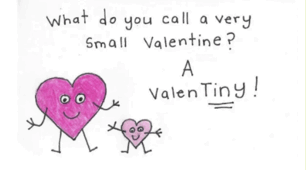 What do you call a very
small Valentine?
A
ValenTiny!